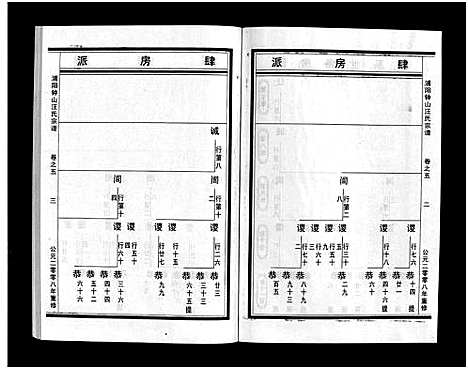 肆房派
浦阳钟山汪氏宗谱
卷之五
二
公元二零零八年重修
訚
行第二
八
谡
行七六
谡
行十八
谡
行三十
谡
行七十
恭
十四
恭
廿一
恭
六十
恭
二九
恭
百五
肆房派
浦阳钟山汪氏宗谱
卷之五
三
公元二零零八年重修
诚
行第八
行第十
二
行第十
四
谡
行二六
谡
行廿七
谡
行十五
谡
行五十
四
谡
行六十
恭
廿三
恭
三十三
恭
六十五
恭
九九
恭
三十六
恭
五十二
恭
六十六